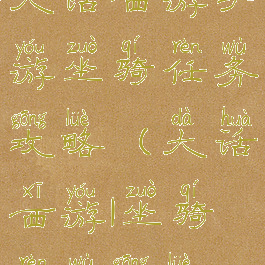 大话西游步
yóu zuò qí rèn wù
游坐骑任务
gōng lüè dà huà
攻略(大话
xī yóu zuò qí
西游|坐骑
rèn wù gōng lüè